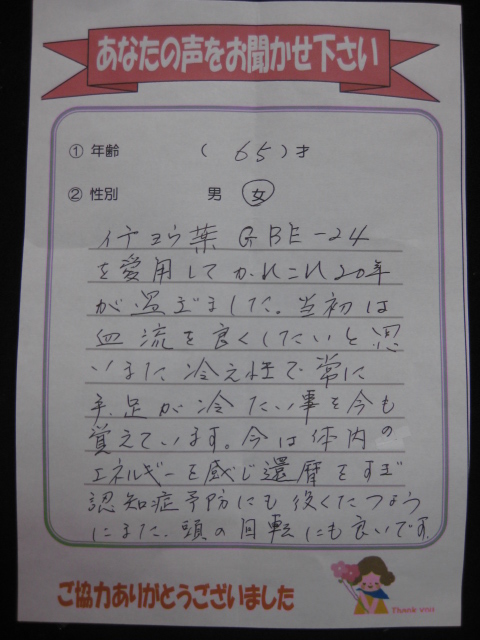 あなたの声をお聞かせ下さい
① 年齢 ( 65 ) 才
② 性別 男 女
イチョウ葉 GBE-24
を愛用してかれこれ20年
が過ぎました。当初は
血流を良くしたいと思
いまた冷え性で常に
手、足が冷たい事を今も
覚えています。今は体内の
エネルギーを感じ還暦をすぎ
認知症予防にも役くたつよう
にまた、頭の回転にも良いです。
ご協力ありがとうございました
Thank you